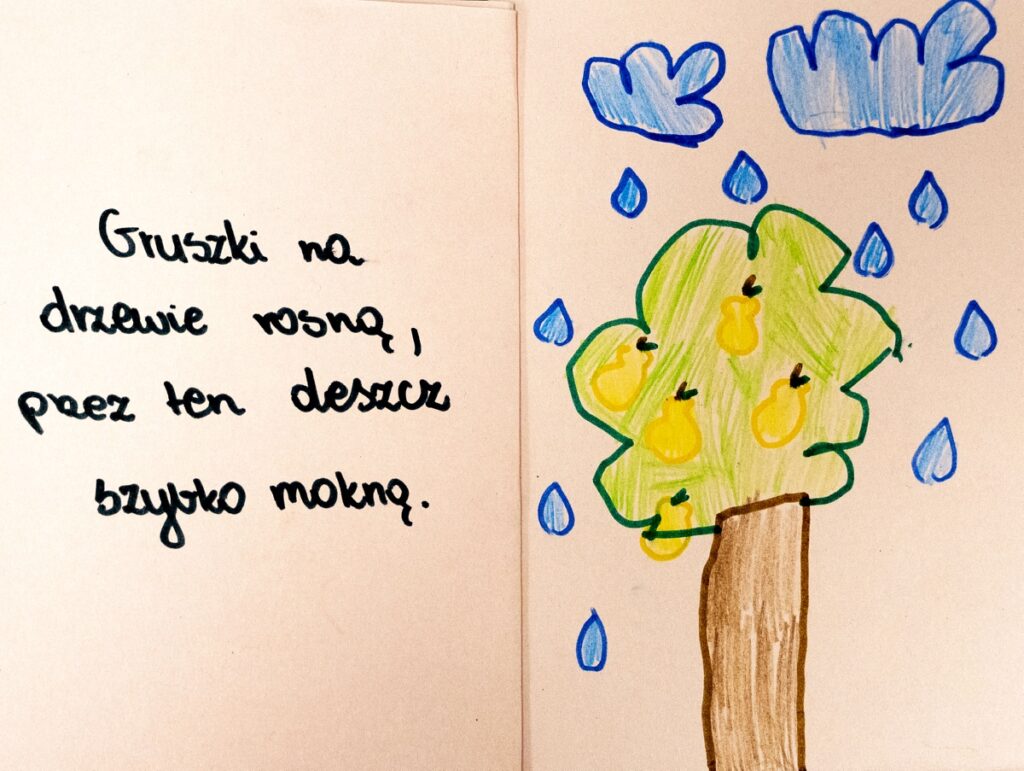 Gruszki na
drzewie rosną,
przez ten deszcz
szybko mokną.